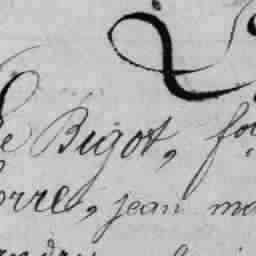 Le Bigot, fo
orre, jean ma